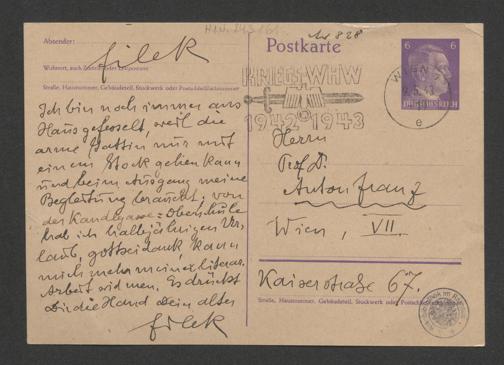 H.I.N. 243161
Nr 828
Absender:
Filek
Wohnort, auch Zustell- oder Leitpostamt
Straße, Hausnummer, Gebäudeteil, Stockwerk oder Postschließfachnummer
Ich bin noch immer ans
Haus gefesselt, weil die
arme Gattin nur mit
einem Stock gehen kann
und beim Ausgang meine
Begleitung braucht; von
der Kandlgasse-Oberschule
hab ich halbjährigen Ur-
laub, gottseidank, kann
mich mehr meiner literar.
Arbeit widmen. Es drückt
Dir die Hand Dein alter
Filek
Postkarte
KRIEGS-WHW
1942-1943
WIEN
e
6 6
DEUTSCHES REICH
Herrn
Prof. Dr.
Anton Franz
Wien, VII.
Kaiserstraße 67.
Straße, Hausnummer, Gebäudeteil, Stockwerk oder Postschließfachnummer